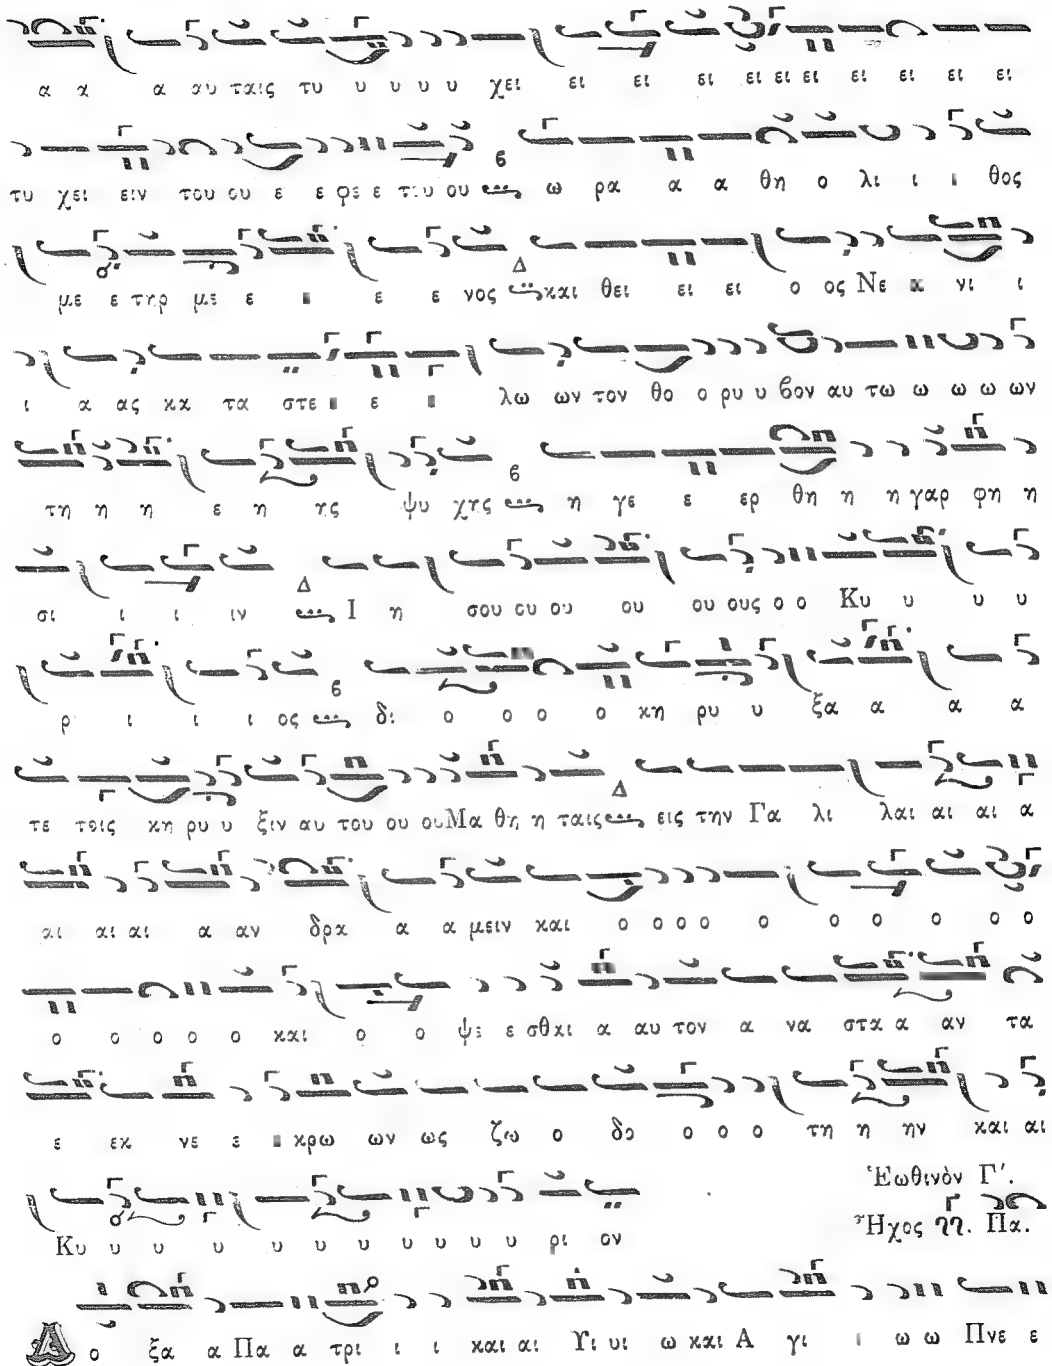 α α α αυ ταις τυ υ υ υ υ χει ει ει ει ει ει ει ει ει ει ει
τυ χει ειν του ου ε ε φε ε του ου ω ρα α α θη ο λι ι ι θος
με ε τηρ με ε ε ε νος Δ και θει ει ει ο ος Νε νι ι
ι α ας κα τα στε ε λω ων τον θο ο ρυ υ βον αυ τω ω ω ω ων
τη η η ε η ης ψυ χης η γε ε ερ θη η η γαρ φη η
σι ι ι ιν Δ Ι η σου ου ου ου ου ους ο ο Κυ υ υ υ
ρ ι ι ι ος δι ο ο ο ο κη ρυ υ ξα α α α
τε τοις κη ρυ υ ξιν αυ του ου ου Μα θη η ταις Δ εις την Γα λι λαι αι αι α
αι αι αι α αν δρα α α μειν και ο ο ο ο ο ο ο ο ο ο
ο ο ο ο ο και ο ο ψε ε σθαι α αυ τον α να στα α αν τα
ε εκ νε ε κρω ων ως ζω ο δο ο ο ο τη η ην και αι
Ἑωθινὸν Γʹ.
Ἦχος Πα.
Κυ υ υ υ υ υ υ υ υ υ ρι ον
Δ ο ξα α Πα α τρι ι ι και αι Υι υι ω και Α γι ι ω ω Πνε ε